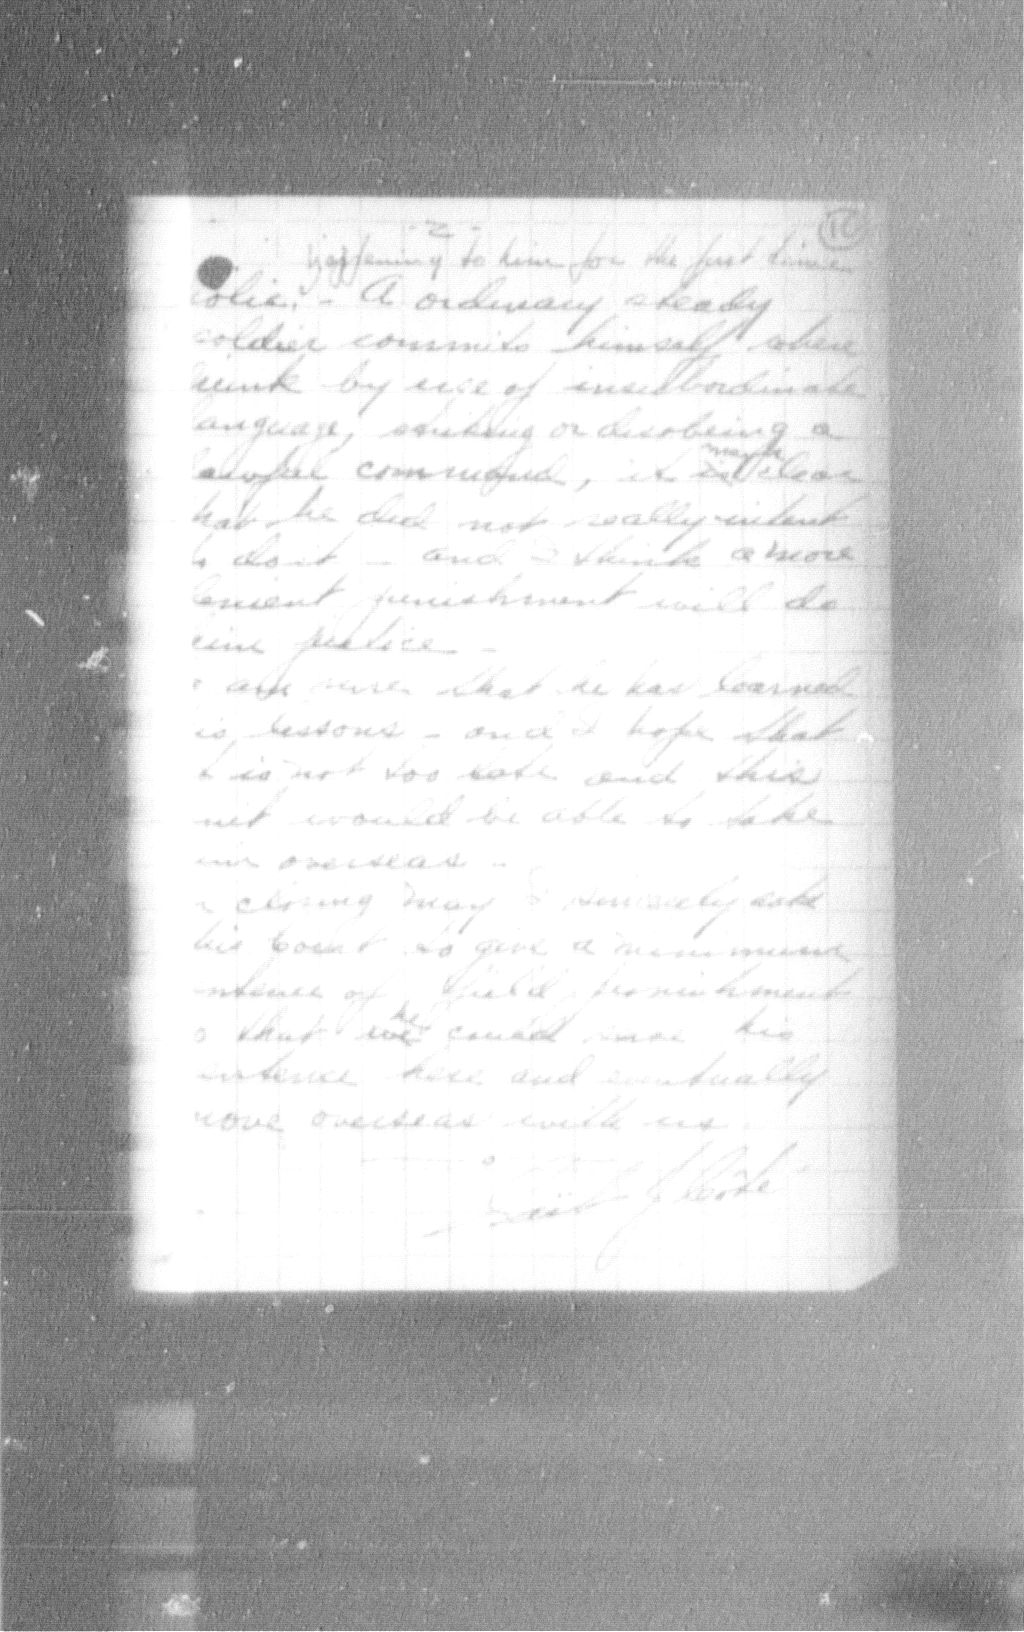 - 2 -
happening to him for the first time
olic. - A ordinary steady
soldier commits himself when
rink by use of insubordinate
anguage, striking or disobeing a
lawful command, it is clear
hat he did not really intent
do it - and I think a more
lenient punishment will do
him justice -
I am sure that he has learned
is lessons - and I hope that
t is not too late and this
nit would be able to take
him overseas -
n closing may I sincerely ask
his Court to give a minimum
ntence of field punishment
o that he could serve his
entence here and eventually
move overseas with us